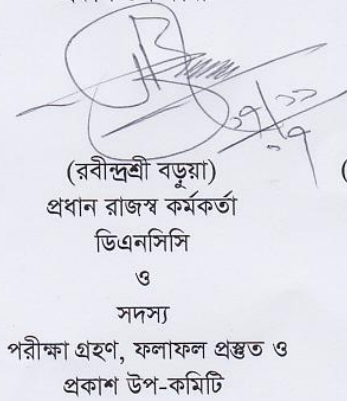 (রবীন্দ্রশ্রী বড়ুয়া)
প্রধান রাজস্ব কর্মকর্তা
ডিএনসিসি
ও
সদস্য
পরীক্ষা গ্রহণ, ফলাফল প্রস্তুত ও
প্রকাশ উপ-কমিটি